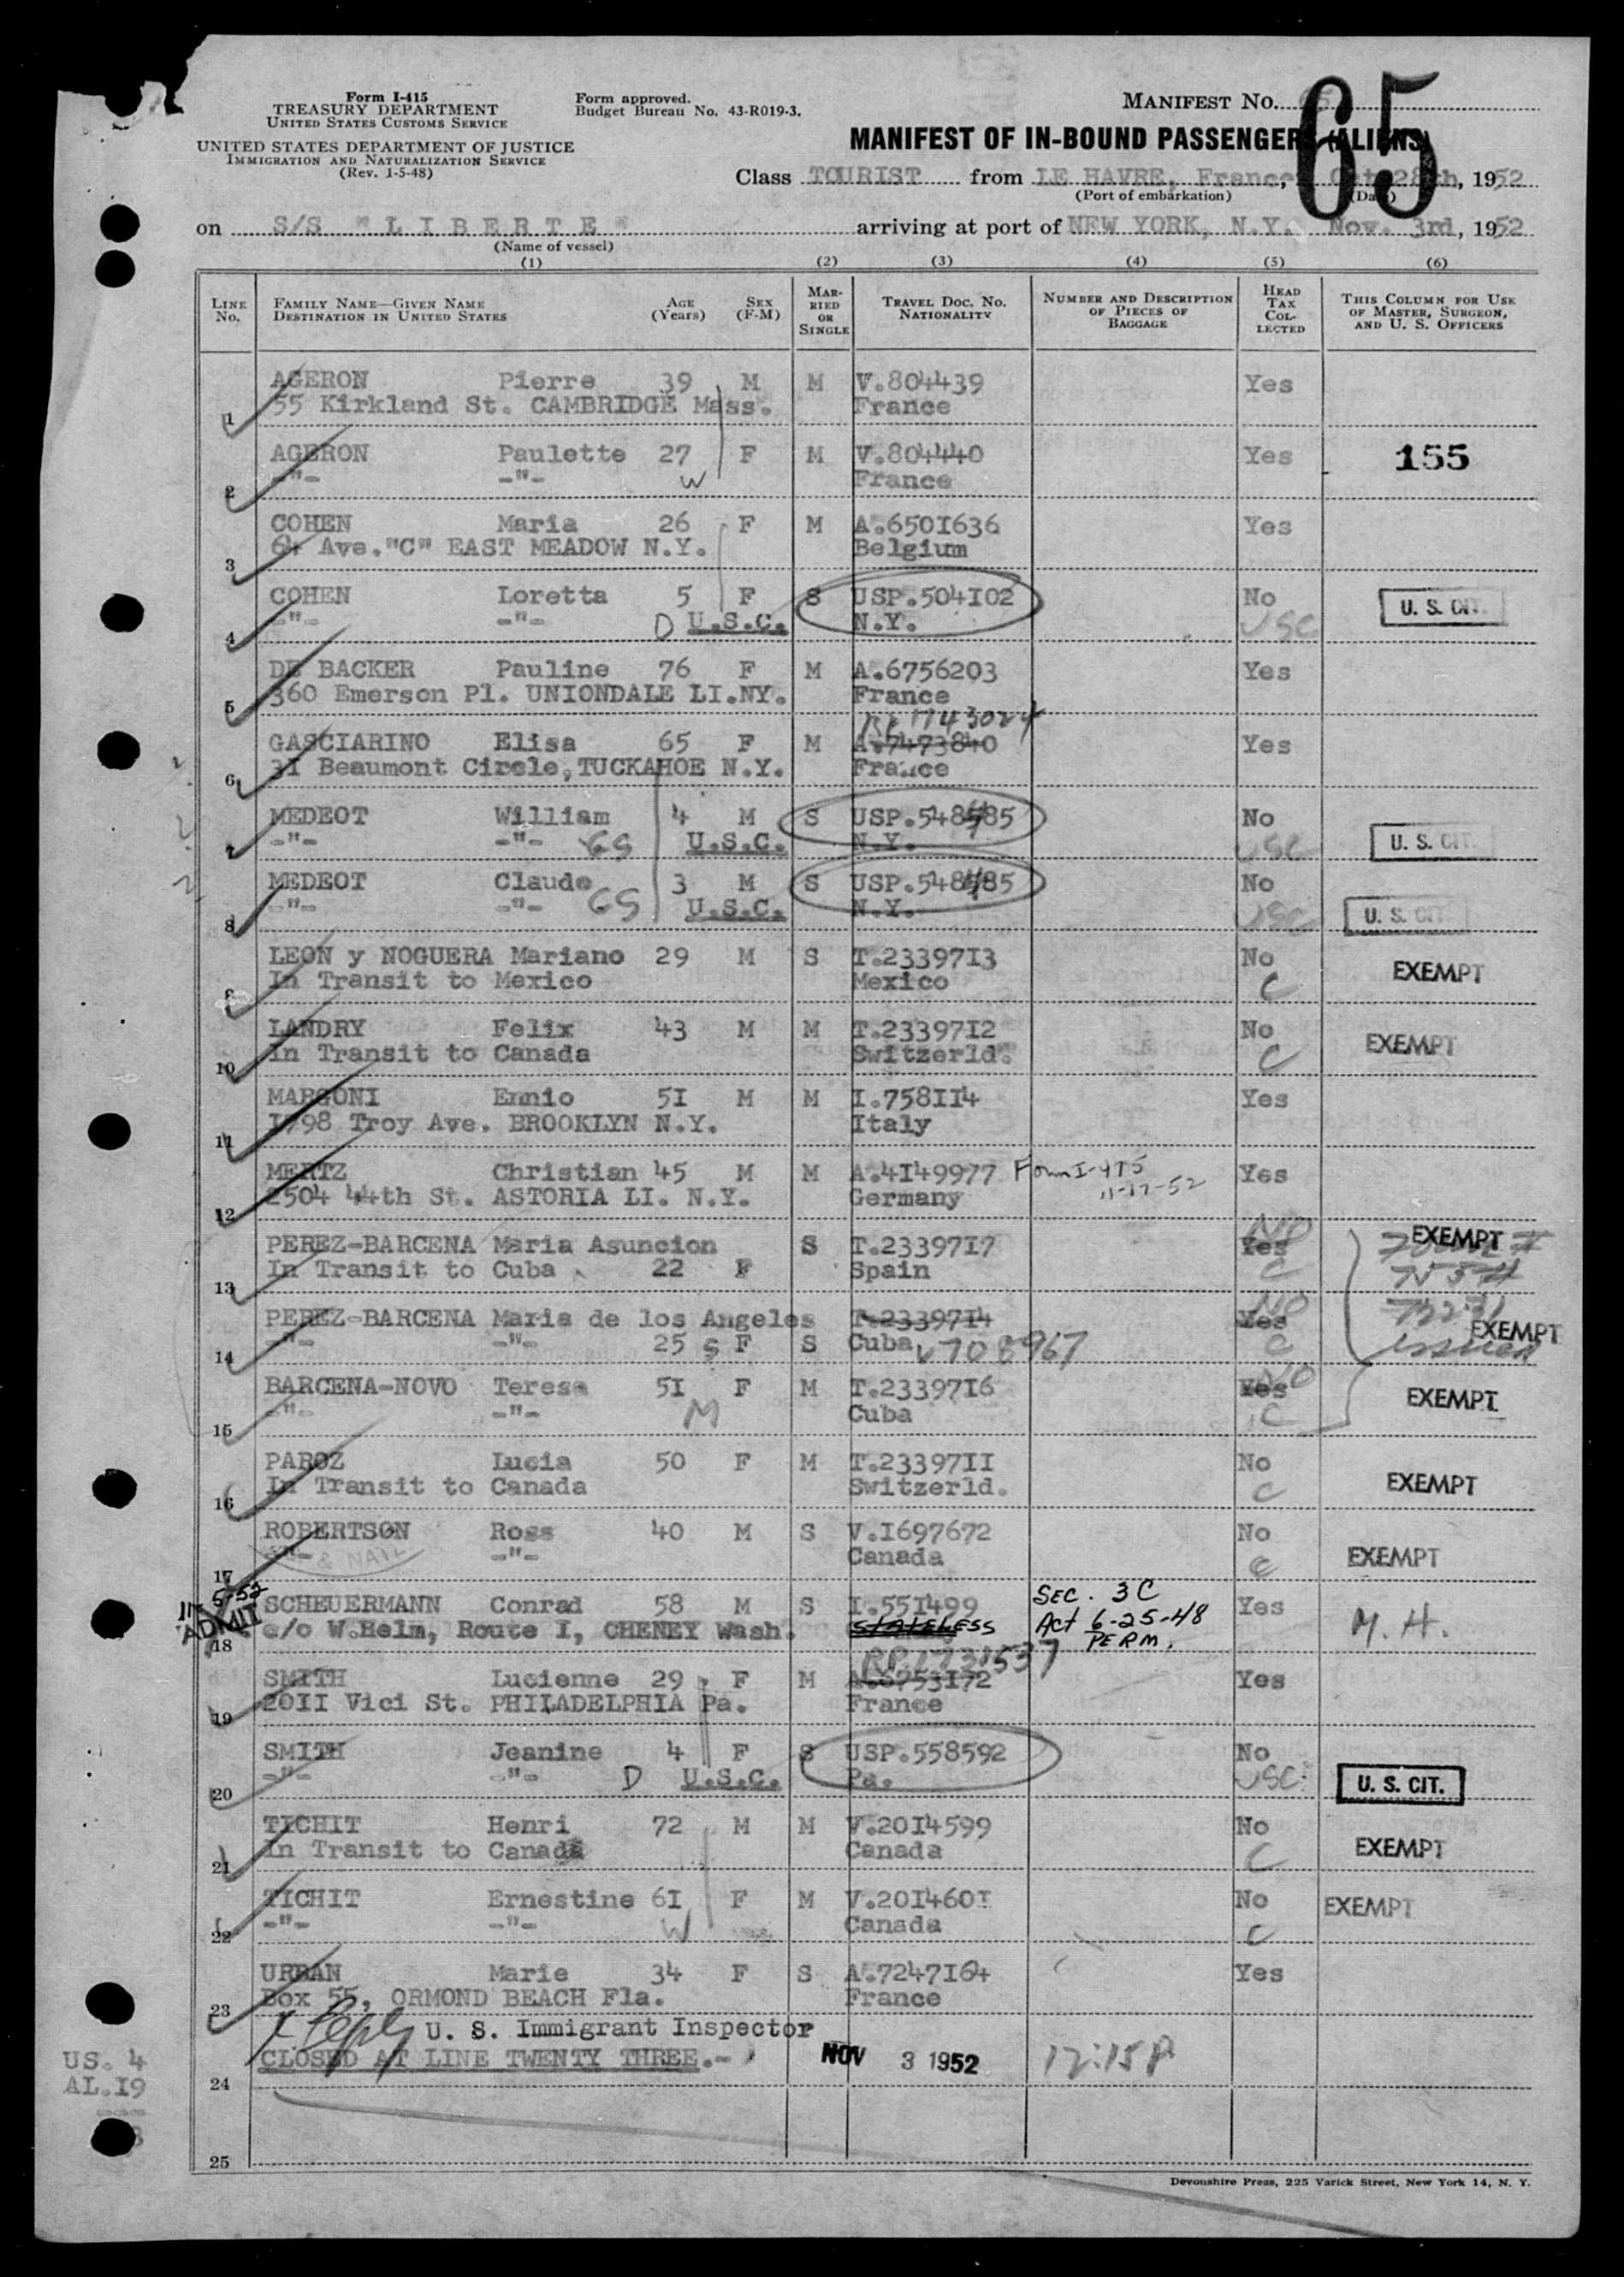 Form I-415
TREASURY DEPARTMENT
UNITED STATES CUSTOMS SERVICE
UNITED STATES DEPARTMENT OF JUSTICE
IMMIGRATION AND NATURALIZATION SERVICE
(Rev. 1-5-48)
Form approved.
Budget Bureau No. 43-R019-3.
MANIFEST NO.
65
MANIFEST OF IN-BOUND PASSENGERS (ALIENS)
Class TOURIST from LE HAVRE, France, Oct. 28th, 1952
(Port of embarkation) (Date)
on S/S "LIBERTE" arriving at port of NEW YORK, N.Y. Nov. 3rd, 1952
(Name of vessel)
(1) (2) (3) (4) (5) (6)
LINE No. FAMILY NAME—GIVEN NAME DESTINATION IN UNITED STATES AGE (Years) SEX (F-M) MARRIED OR SINGLE TRAVEL DOC. NO. NATIONALITY NUMBER AND DESCRIPTION OF PIECES OF BAGGAGE HEAD TAX COLLECTED THIS COLUMN FOR USE OF MASTER, SURGEON, AND U. S. OFFICERS
AGERON Pierre 39 M M V.804439 Yes
1 55 Kirkland St. CAMBRIDGE Mass. France
AGERON Paulette 27 F M V.804440 Yes 155
2 -"- -"- W France
COHEN Maria 26 F M A.6501636 Yes
3 64 Ave."C" EAST MEADOW N.Y. Belgium
COHEN Loretta 5 F S USP.504102 No U. S. CIT.
4 -"- -"- D U.S.C. N.Y. USC
DE BACKER Pauline 76 F M A.6756203 Yes
5 360 Emerson Pl. UNIONDALE LI.NY. France
RP 1143024
GASCIARINO Elisa 65 F M A.7473840 Yes
6 31 Beaumont Circle, TUCKAHOE N.Y. France
MEDEOT William 4 M S USP.548485 No
7 -"- -"- GS U.S.C. N.Y. USC U. S. CIT.
MEDEOT Claude 3 M S USP.548485 No
8 -"- -"- GS U.S.C. N.Y. USC U. S. CIT.
LEON y NOGUERA Mariano 29 M S T.2339713 No EXEMPT
9 In Transit to Mexico Mexico C
LANDRY Felix 43 M M T.2339712 No EXEMPT
10 In Transit to Canada Switzerld. C
MARGONI Ennio 51 M M I.758114 Yes
11 1798 Troy Ave. BROOKLYN N.Y. Italy
MERTZ Christian 45 M M A.4149977 Form I-475 Yes
12 2504 44th St. ASTORIA LI. N.Y. Germany 11-17-52
PEREZ-BARCENA Maria Asuncion S T.2339717 Yes NO EXEMPT
13 In Transit to Cuba 22 F Spain C
PEREZ-BARCENA Maria de los Angeles T.2339714 Yes NO
14 -"- -"- 25 S F S Cuba V708967 C EXEMPT
BARCENA-NOVO Teresa 51 F M T.2339716 Yes NO EXEMPT
15 -"- -"- M Cuba C
PAROZ Lucia 50 F M T.2339711 No EXEMPT
16 In Transit to Canada Switzerld. C
ROBERTSON Ross 40 M S V.1697672 No EXEMPT
17 -"- -"- Canada C
5-52 SCHEUERMANN Conrad 58 M S I.551499 SEC. 3C Yes M. H.
ADMIT c/o W.Helm, Route I, CHENEY Wash. STATELESS Act 6-25-48
18 PERM.
RP1731537
SMITH Lucienne 29 F M A.6753172 Yes
19 2011 Vici St. PHILADELPHIA Pa. France
SMITH Jeanine 4 F S USP.558592 No
20 -"- -"- D U.S.C. Pa. USC U. S. CIT.
TICHIT Henri 72 M M V.2014599 No
21 In Transit to Canada Canada C EXEMPT
TICHIT Ernestine 61 F M V.2014601 No EXEMPT
22 -"- -"- W Canada C
URBAN Marie 34 F S A.7247164 Yes
23 Box 55, ORMOND BEACH Fla. France
U. S. Immigrant Inspector
CLOSED AT LINE TWENTY THREE.- NOV 3 1952 12:15 P
US. 4
AL.19
24
25
Devonshire Press, 225 Varick Street, New York 14, N. Y.